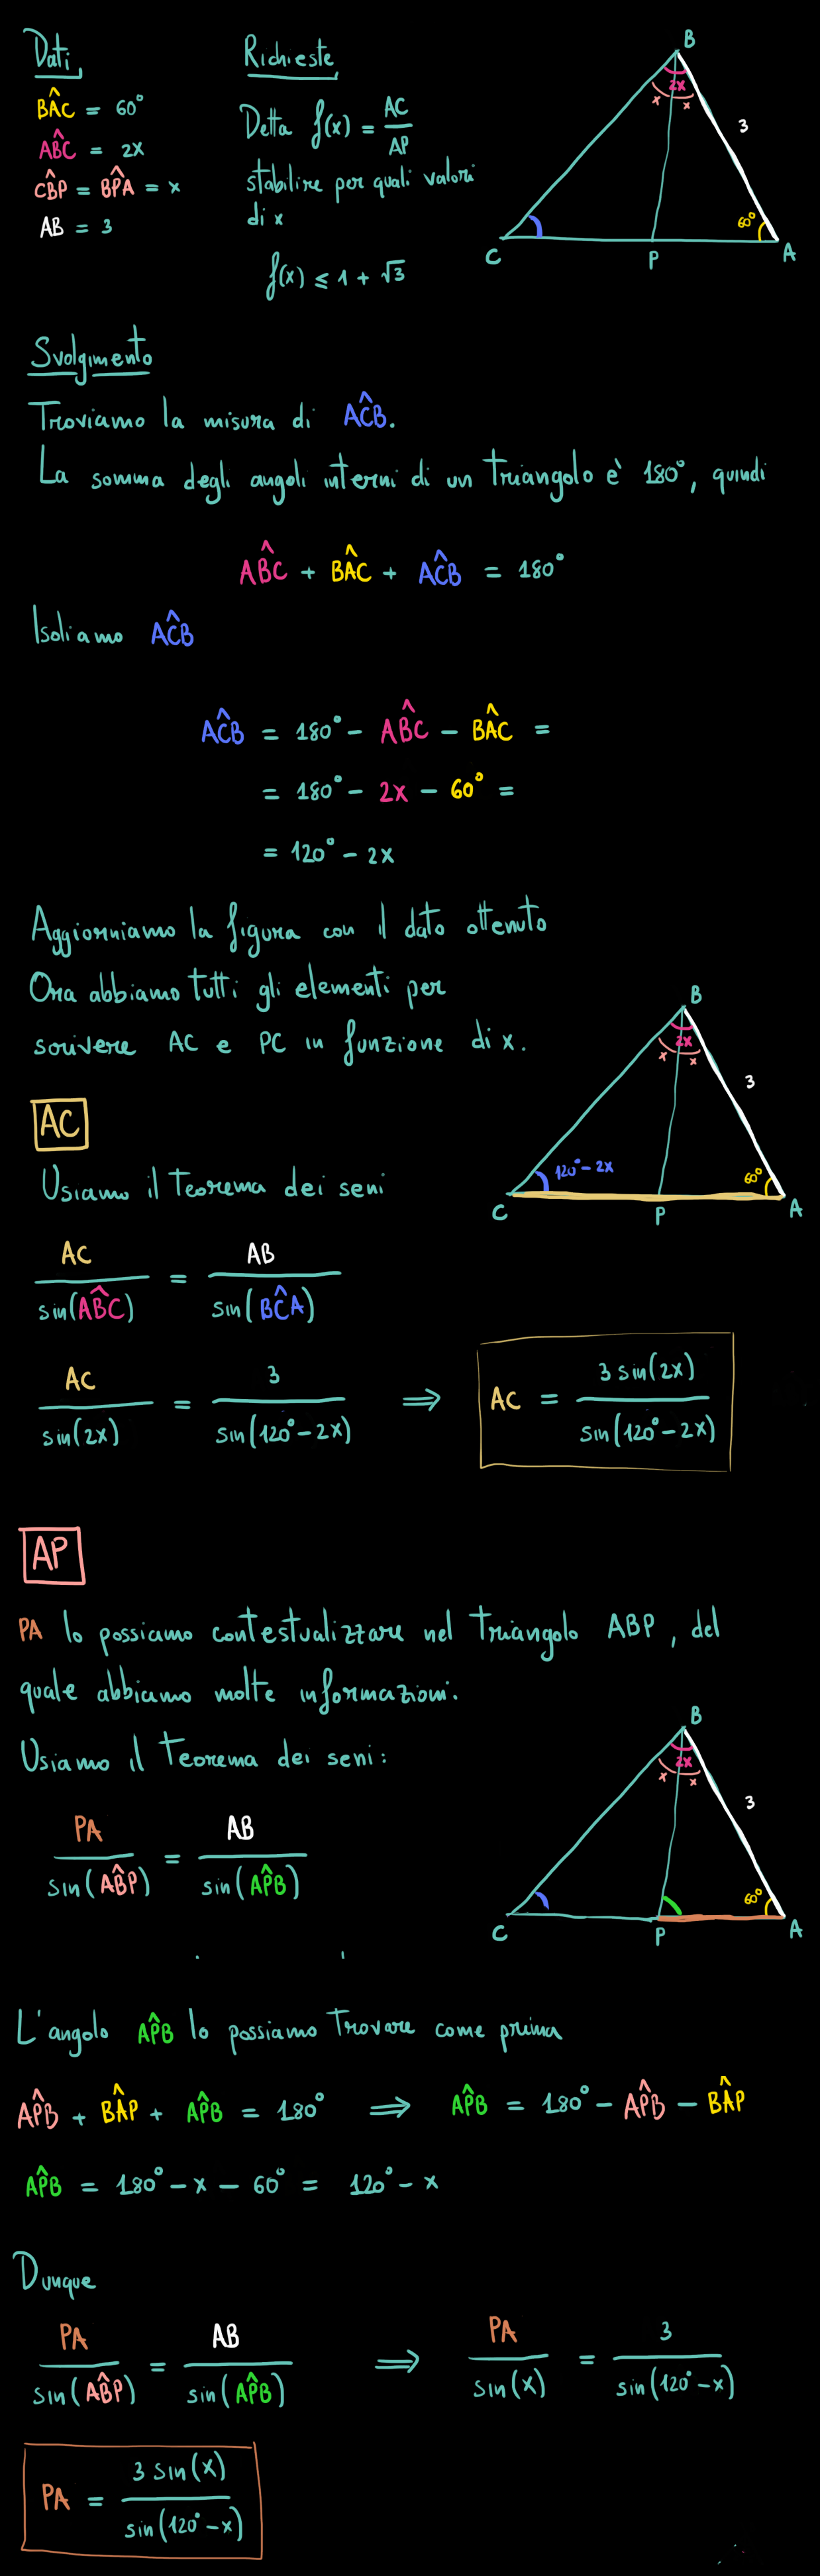 Dati
BÂC = 60°
AB̂C = 2x
CB̂P = BP̂A = x
AB = 3
Richieste
Detta f(x) = AC/AP
stabilire per quali valori
di x
f(x) ≤ 1 + √3
B
2x
x x
3
60°
C P A
Svolgimento
Troviamo la misura di AĈB.
La somma degli angoli interni di un triangolo è 180°, quindi
AB̂C + BÂC + AĈB = 180°
Isoliamo AĈB
AĈB = 180° - AB̂C - BÂC =
= 180° - 2x - 60° =
= 120° - 2x
Aggiorniamo la figura con il dato ottenuto
Ora abbiamo tutti gli elementi per
scrivere AC e PC in funzione di x.
B
2x
x x
3
120° - 2x
60°
C P A
AC
Usiamo il teorema dei seni
AC/sin(AB̂C) = AB/sin(BĈA)
AC/sin(2x) = 3/sin(120° - 2x) ⟹ AC = 3 sin(2x)/sin(120° - 2x)
AP
PA lo possiamo contestualizzare nel triangolo ABP, del
quale abbiamo molte informazioni.
Usiamo il teorema dei seni:
PA/sin(AB̂P) = AB/sin(AP̂B)
B
2x
x x
3
60°
C P A
L'angolo AP̂B lo possiamo trovare come prima
AP̂B + BÂP + AP̂B = 180° ⟹ AP̂B = 180° - AP̂B - BÂP
AP̂B = 180° - x - 60° = 120° - x
Dunque
PA/sin(AB̂P) = AB/sin(AP̂B) ⟹ PA/sin(x) = 3/sin(120° - x)
PA = 3 sin(x)/sin(120° - x)